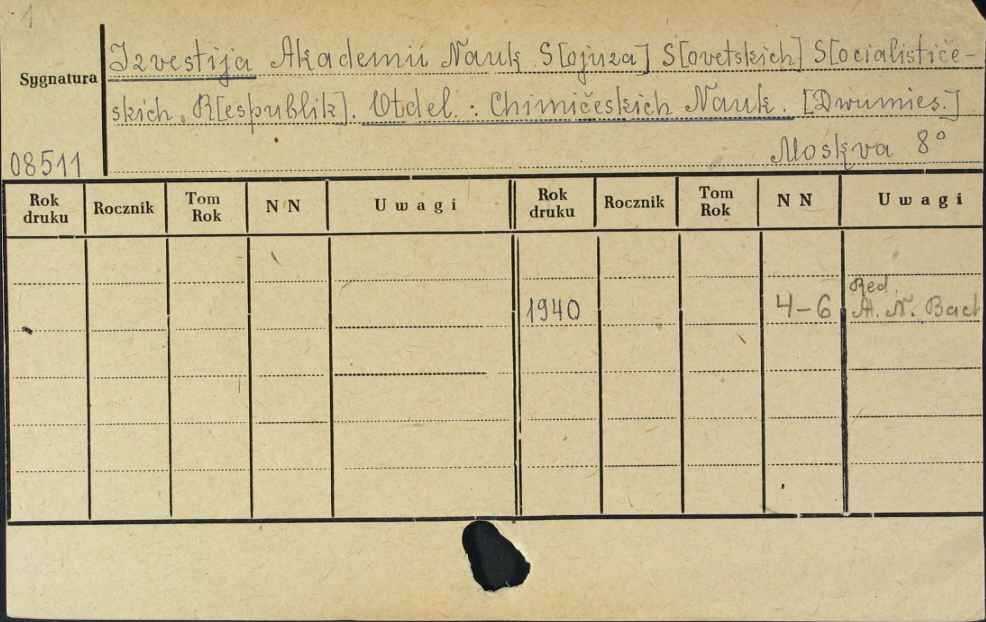 1
Izvestija Akademii Nauk S[ojuza] S[ovetskich] S[ocialističe-
Sygnatura
skich, R[espublik]. Otdel. : Chimičeskich Nauk. [Dwumies.]
08511
Moskva 8°
Rok druku Rocznik Tom Rok NN Uwagi Rok druku Rocznik Tom Rok NN Uwagi
Red.
1940 4-6 A. N. Bach